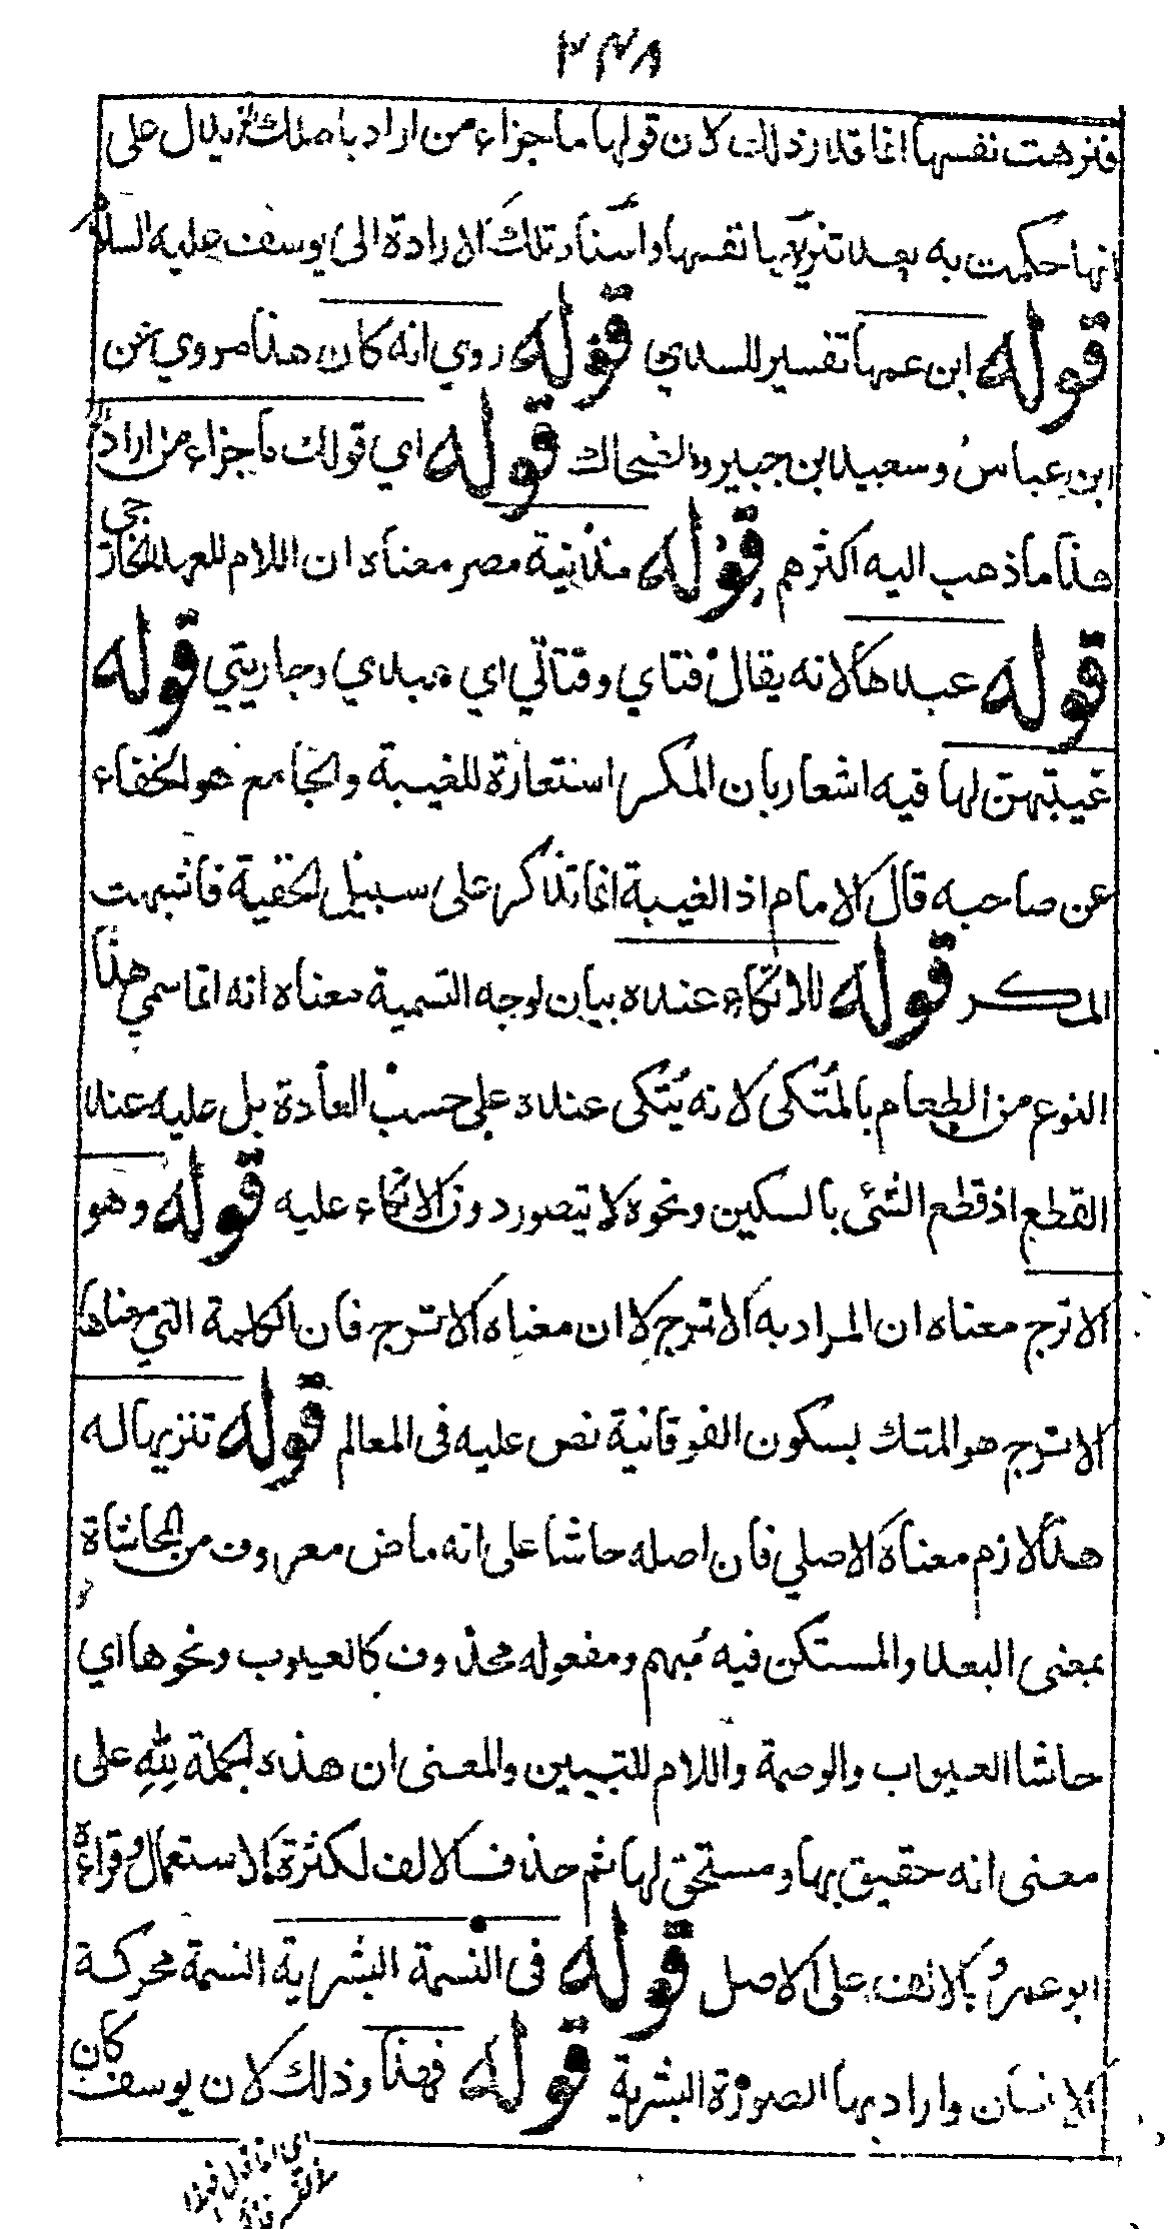 ٣٤٨
فنزهت نفسها انما قدر ذلك لان قولها ما جزاء من اراد باهلك يدل على
انها حكمت به بعد تنزيهها نفسها واسناد تلك الارادة الى يوسف عليه السلام
قوله ابن عمها تفسير للسدي قوله روي انه كان هذا مروي عن
ابن عباس وسعيد ابن جبير والضحاك قوله اي قولك ما جزاء من اراد
هذا ما ذهب اليه اكثرهم قوله مدينة مصر معناه ان اللام للعهد الخارجي
قوله عبدها لانه يقال فتاي وفتاتي اي عبدي وجاريتي قوله
غيبتهن لها فيه اشعار بان المكر استعارة للغيبة والجامع هو الخفاء
عن صاحبه قال الامام اذ الغيبة انما تذكر على سبيل الخفية فاشبهت
المكر قوله للاتكاء عنده بيان لوجه التسمية معناه انه انما سمي هذا
النوع من الطعام بالمتكى لانه يتكى عنده على حسب العادة بل عليه عند
القطع اذ قطع الشئ بالسكين ونحوه لا يتصور دون الاتكاء عليه قوله وهو
الاترج معناه ان المراد به الاترج لا ان معناه الاترج فان الكلمة التي معناها
الاترج هو المتك بسكون الفوقانية نص عليه فى المعالم قوله تنزيها له
هذا لازم معناه الاصلي فان اصله حاشا على انه ماض معروف من المحاشاة
بمعنى البعد والمستكن فيه مبهم ومفعوله محذوف كالعيوب ونحوها اي
حاشا العيوب والوصمة واللام للتبيين والمعنى ان هذه الجملة لله على
معنى انه حقيق بها ومستحق لها ثم حذف الالف لكثرة الاستعمال وقراءة
ابو عمرو بالالف على الاصل قوله فى النسمة البشرية النسمة محركة
الانسان واراد بها الصورة البشرية قوله فهذا وذلك لان يوسف كان